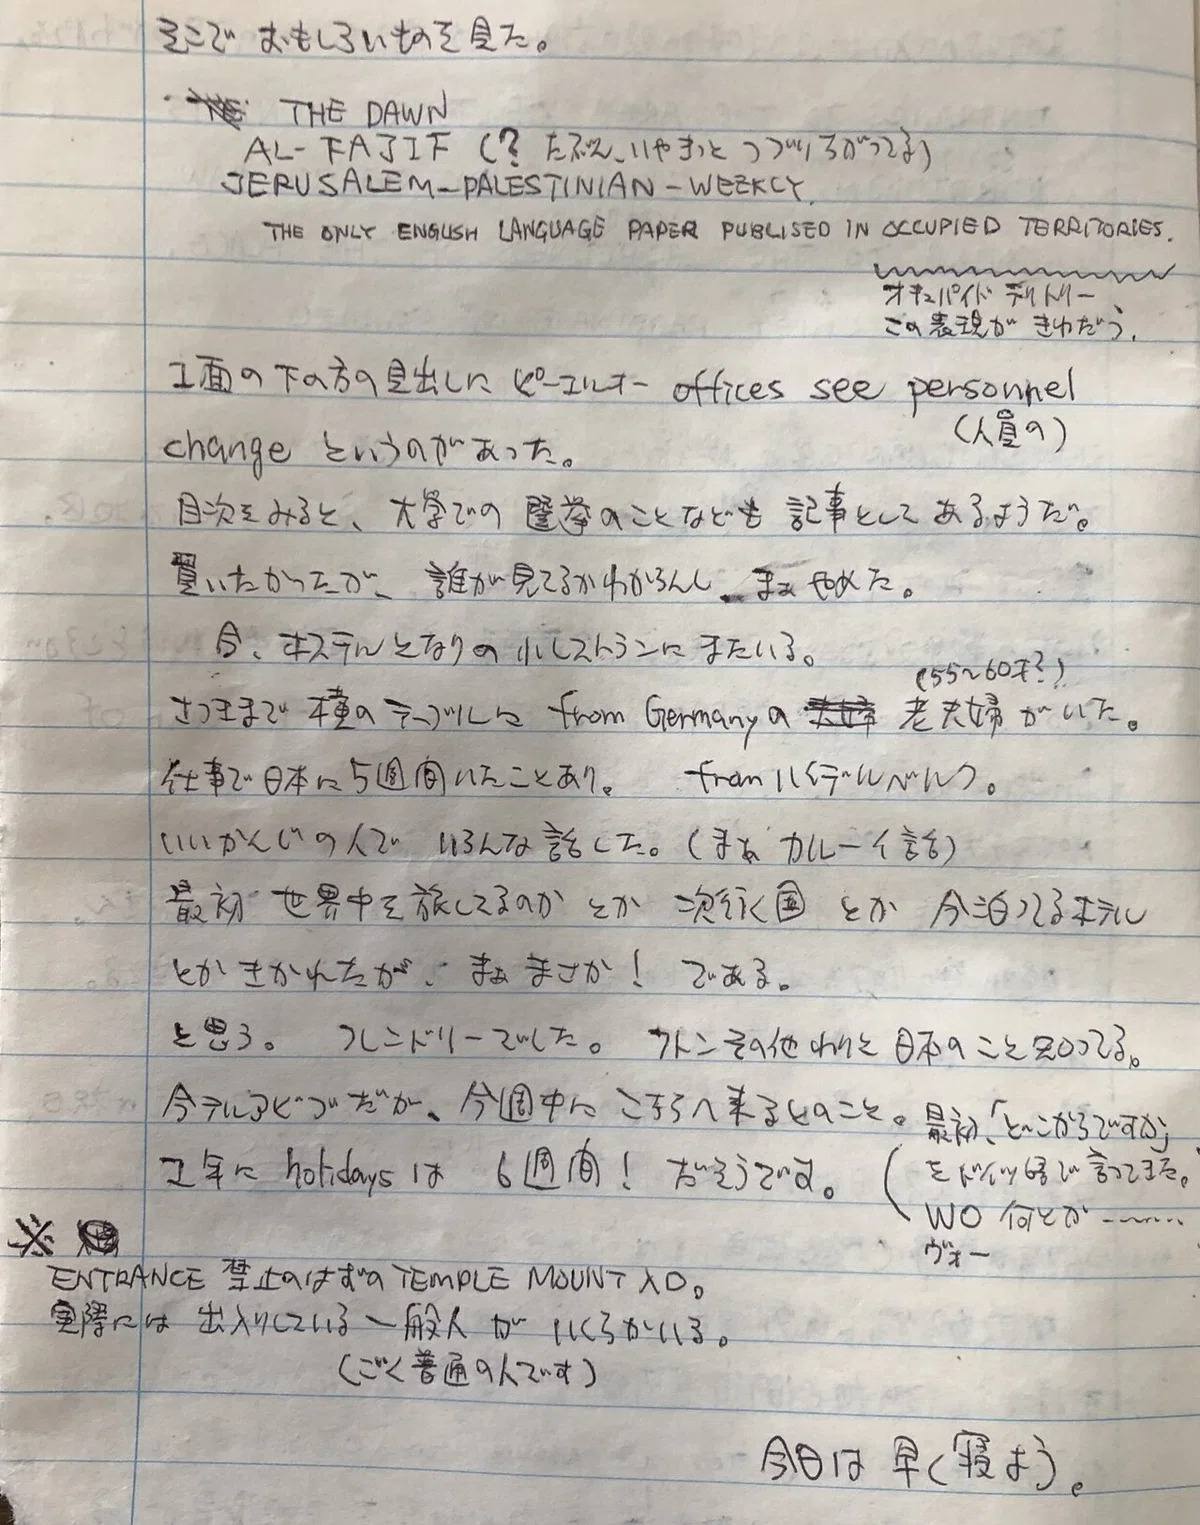 そこで おもしろいものを見た。
THE DAWN
AL-FAJIF (? たぶん、いやきっと つづりちがってる)
JERUSALEM-PALESTINIAN-WEEKLY.
THE ONLY ENGLISH LANGUAGE PAPER PUBLISED IN OCCUPIED TERRITORIES.
オキュパイド テリトリー、
この表現が きわだつ。
1面の下の方の見出しに ピーエルオー offices see personnel
(人員の)
change というのがあった。
目次をみると、大学での 選挙のことなども 記事としてあるようだ。
買いたかったが、誰が見てるかわからんし、まぁ やめた。
今、ホステルとなりの 小レストランにまたいる。
(55~60才?)
さっきまで 横のテーブルに from Germanyの 老夫婦がいた。
仕事で日本に5週間いたことあり。 from ハイデルベルク。
いいかんじの人で いろんな話した。(まぁ カルーイ話)
最初 世界中を旅してるのか とか 次行く国 とか 今泊ってるホテル
とか きかれたが、まぁ まさか! である。
と思う。 フレンドリーでした。 フトンその他 わりと 日本のこと知ってる。
今テルアビブだが、今週中に こちらへ来るとのこと。
1年に holidaysは 6週間! だそうです。
最初、「どこからですか」
をドイツ語で言ってきた。
WO 何とか ------
ヴォー
※
ENTRANCE 禁止のはずの TEMPLE MOUNT 入口。
実際には 出入りしている一般人 が いくらかいる。
(ごく普通の人です)
今日は 早く寝よう。